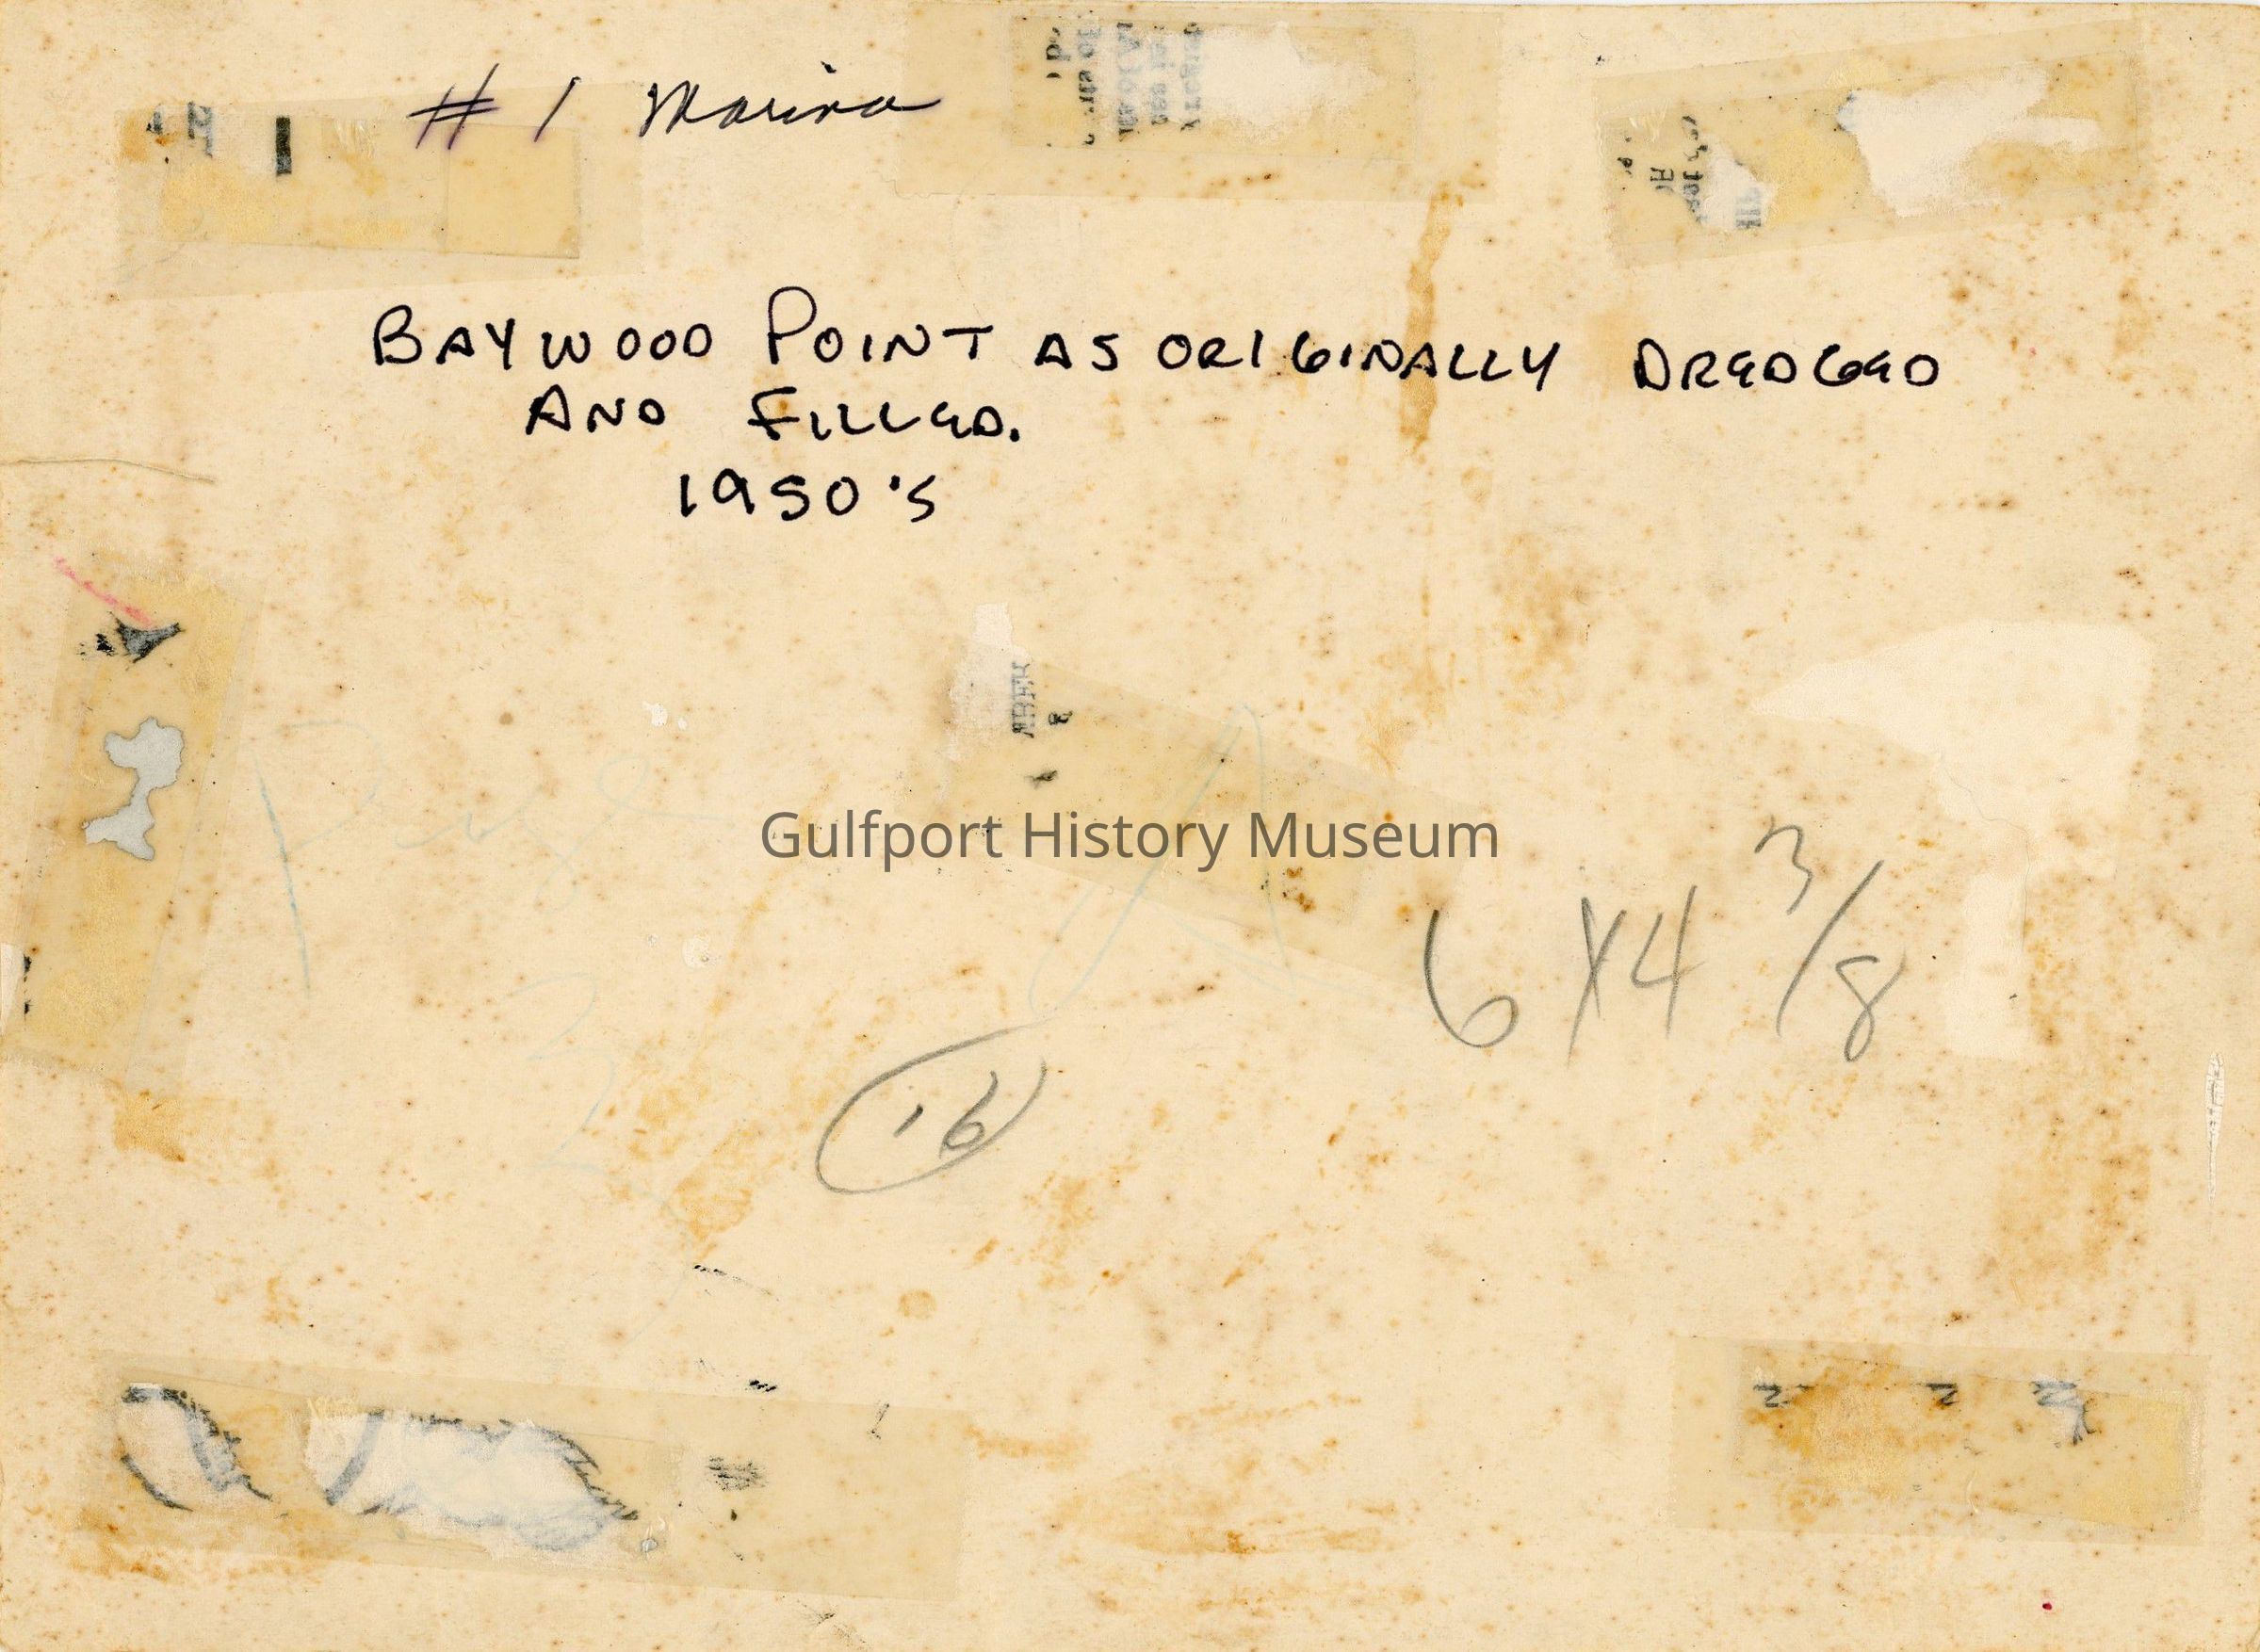 # 1 Marina
BAYWOOD POINT AS ORIGINALLY DREDGED
AND FILLED.
1950's
Page
Gulfport History Museum
6 x 4 3/8
3
16